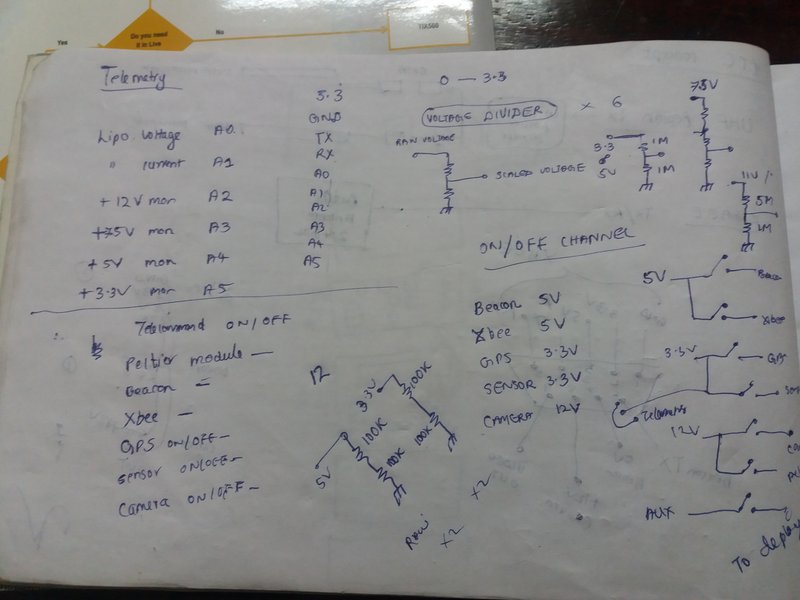 Yes
Do you need it in Live
No
Telemetry
3.3
GND
Lipo. Voltage A0
TX
" current A1
RX
A0
+12V mon A2
A1
A2
+7.5V mon A3
A3
+5V mon A4
A4
A5
+3.3V mon A5
Telecommand ON/OFF
Peltier module —
Beacon —
Xbee —
GPS ON/OFF —
Sensor ON/OFF —
Camera ON/OFF —
12
0 — 3.3
VOLTAGE DIVIDER × 6
RAW VOLTAGE
SCALED VOLTAGE
3.3
5V
1M
1M
7.5V
11V
5M
1M
ON/OFF CHANNEL
Beacon 5V
Xbee 5V
GPS 3.3V
SENSOR 3.3V
CAMERA 12V
5V
Beacon
Xbee
3.3V
GPS
Telemetry
12V
AUX
To deploy
3.3V
100K
100K
5V
100K
100K
Raw
×2
×2